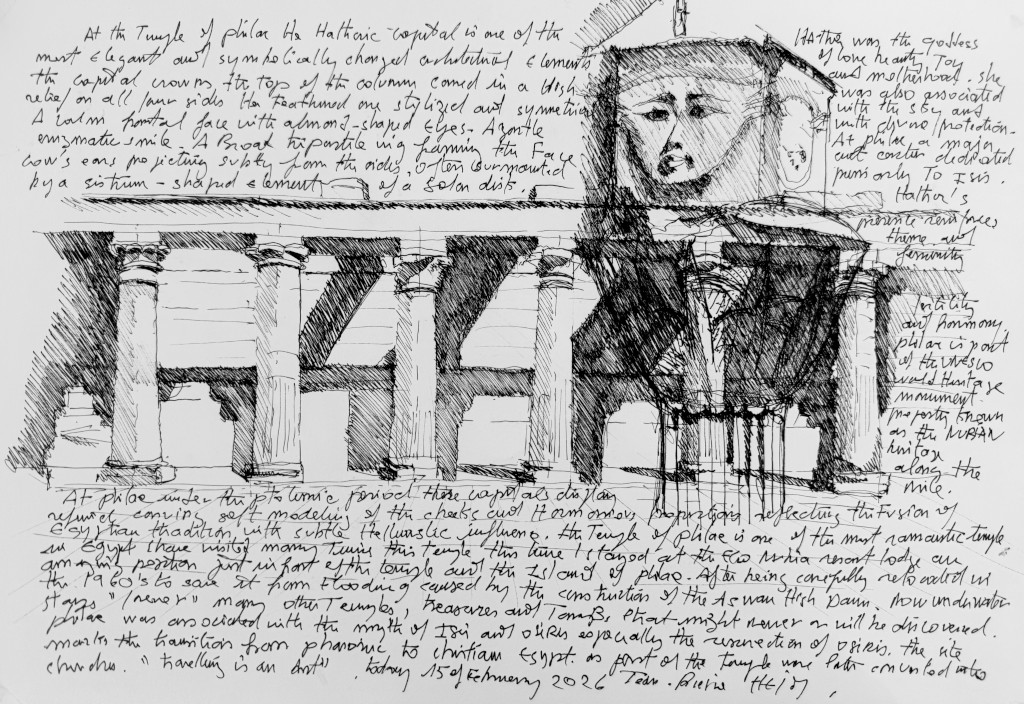 At the Temple of philae the Hathoric capital is one of the
most Elegant and symbolically charged architectural Elements
the capital crowns the top of the column carved in a High
relief on all four sides the Feathured are stylized and symmetrical
A calm frontal face with almond-shaped Eyes. A gentle
enigmatic smile. A Broad tripartite wig framing the Face
cow's ears projecting subtly from the sides, often surmounted
by a sistrum-shaped Element of a Solar disk.
Hathor was the goddess
of love beauty Joy
and motherhood. she
was also associated
with the sky and
with divine protection.
At philae, a major
cult center dedicated
primarily To Isis.
Hathor's
presence reinforces
theme and
femininity
fertility
and harmony.
philae is part
of the UNESCO
world Heritage
monument.
property known
as the NUBIAN
heritage
along the
nile.
At philae under the ptolemic period these capitals display
refined carving soft modeling of the cheeks and Harmonious proportions reflecting the Fusion of
Egyptian tradition with subtle Hellenistic influence. the Temple of philae is one of the most romantic temple
in Egypt I have visited many times this temple this time I stayed at the Eco Nubia resort lodge an
amazing position just in front of the temple and the Island of philae. After being carefully relocated in
the 1960's to save it from Flooding caused by the construction of the Aswan High Dam. now underwater
stays "forever" many other Temples, treasures and Tombs that might never or will be discovered.
philae was associated with the myth of Isis and osiris especially the resurrection of osiris. the site
marks the transition from pharaonic to christian Egypt. as part of the temple were later converted into
churches. "travelling is an art". today 15 of February 2026